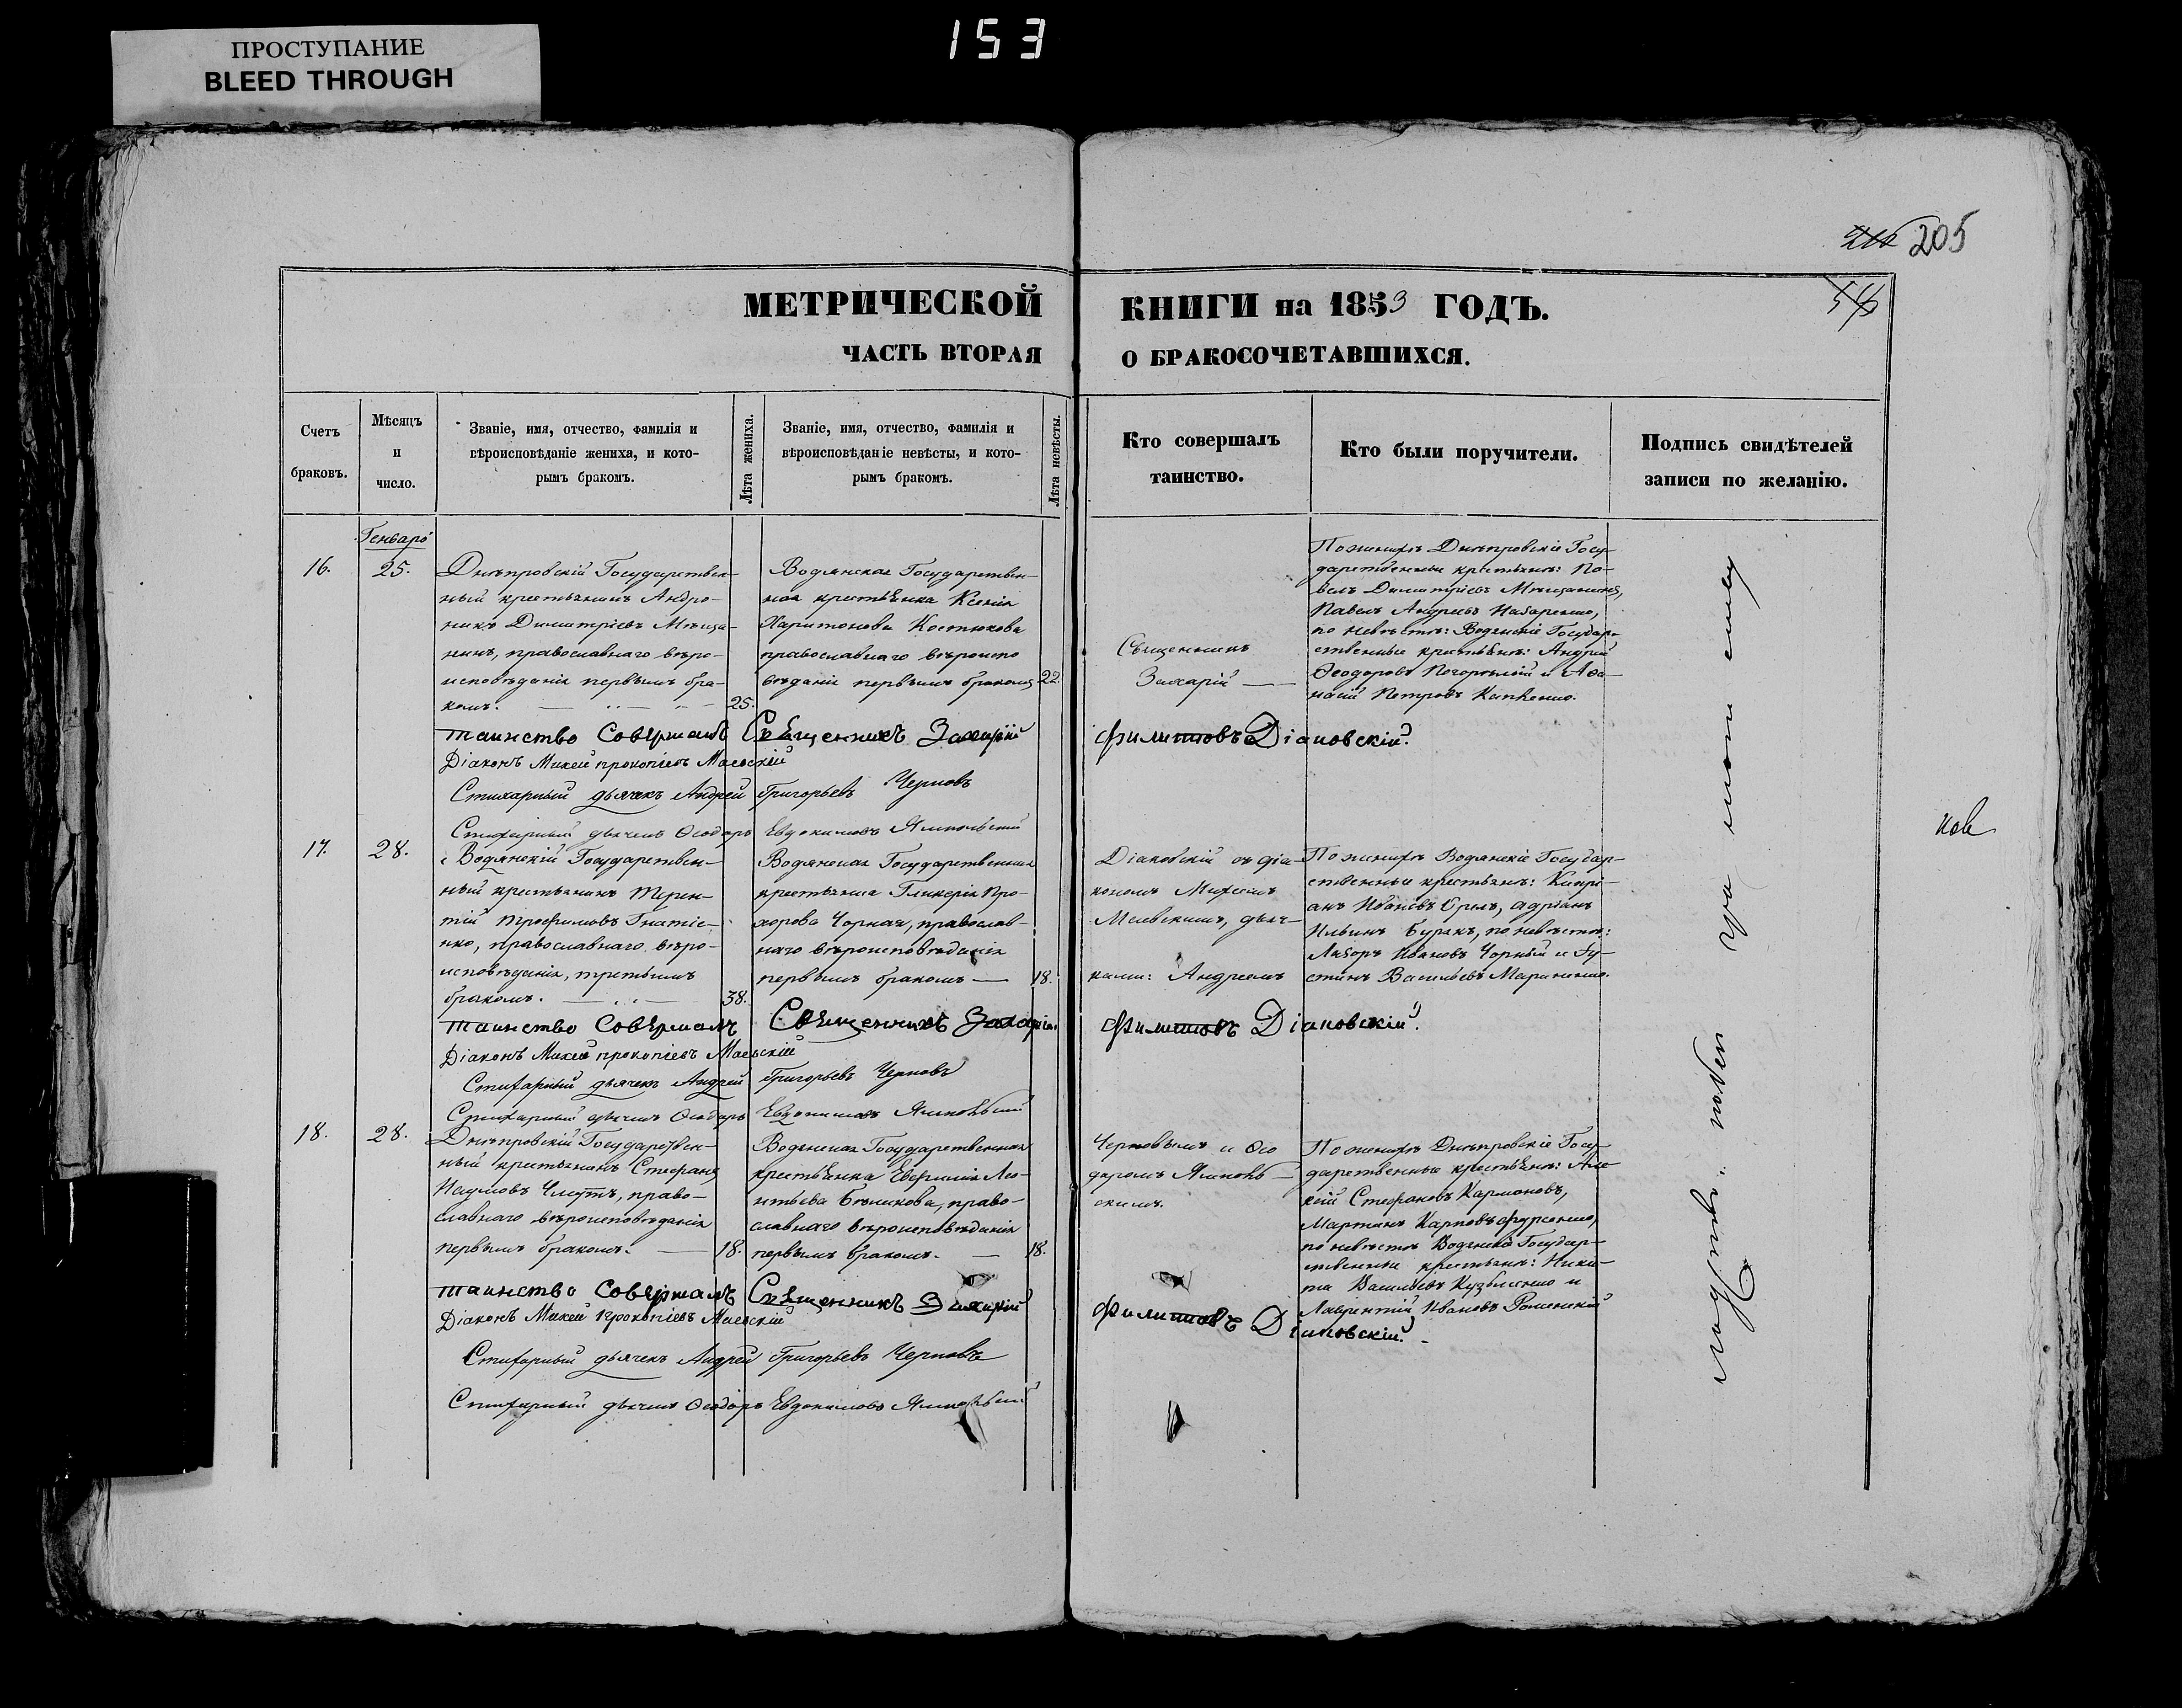 ПРОСТУПАНИЕ
BLEED THROUGH
153
205
МЕТРИЧЕСКОЙ КНИГИ на 1853 ГОДЪ.
ЧАСТЬ ВТОРАЯ О БРАКОСОЧЕТАВШИХСЯ.
Счетъ
браковъ.
Мѣсяцъ
и
число.
Званіе, имя, отчество, фамилія и
вѣроисповѣданіе жениха, и кото-
рымъ бракомъ.
Лѣта жениха.
Званіе, имя, отчество, фамилія и
вѣроисповѣданіе невѣсты, и кото-
рымъ бракомъ.
Лѣта невѣсты.
Кто совершалъ
таинство.
Кто были поручители.
Подпись свидѣтелей
записи по желанію.
Генваря
16.
25.
Днѣпровскій Государствен-
ный крестьянинъ Андро-
никъ Димитріевъ Мѣща-
нинъ, православнаго вѣро-
исповѣданія первымъ бра-
комъ.
25.
Водянская Государствен-
ная крестьянка Ксенія
Харитонова Костюкова
православнаго вѣроиспо
вѣданія первымъ бракомъ
22.
Священникъ
Захарій
По женихѣ Днѣпровскіе Госу-
дарственные крестьяне: Па-
велъ Димитріевъ Мѣщанинъ,
Павелъ Андреевъ Назаренко,
по невѣстѣ: Водянскіе Государ-
ственные крестьяне: Андрей
Ѳеодоровъ Погорѣлый и Аѳа-
насій Петровъ
Таинство Совершалъ Священникъ Захарій Филиповъ Діаковскій.
Діаконъ Михей Прокопіевъ Маевскій
Стихарный дьячекъ Андрей Григорьевъ Черновъ
Стихарный дьячекъ Ѳеодоръ Евдокимовъ Ямпольскій
17.
28.
Водянскій Государствен-
ный крестьянинъ Терен-
тій Трофимовъ Гнатіе-
нко, православнаго вѣро-
исповѣданія, третьимъ
бракомъ.
38.
Водянская Государственная
крестьянка Гликерія Про-
хорова Чорная, православ-
наго вѣроисповѣданія
первымъ бракомъ
18.
Діаковскій съ діа-
кономъ Михеемъ
Маевскимъ, дьяч-
ками: Андреемъ
По женихѣ Водянскіе Государ-
ственные крестьяне: Кипрі-
анъ Ивановъ Орелъ, Адріанъ
Ильинъ Бурякъ, по невѣстѣ:
Ивановъ Чорный и Іу-
стинъ Васильевъ Мариненко.
Таинство Совершалъ Священникъ Захарій Филиповъ Діаковскій.
Діаконъ Михей Прокопіевъ Маевскій
Стихарный дьячекъ Андрей Григорьевъ Черновъ
Стихарный дьячекъ Ѳеодоръ Евдокимовъ Ямпольскій
18.
28.
Днѣпровскій Государствен-
ный крестьянинъ Стефанъ
Наумовъ право-
славнаго вѣроисповѣданія
первымъ бракомъ.
18.
Водянская Государственная
крестьянка Евфимія Ле-
нтьева Бѣликова, право-
славнаго вѣроисповѣданія
первымъ бракомъ.
18.
Черновымъ и Ѳео
доромъ Ямполь-
скимъ.
По женихѣ Днѣпровскіе Госу-
дарственные крестьяне: Але
ксій Стефановъ
Мартинъ Карповъ
по невѣстѣ Водянскіе Государ-
ственные крестьяне: Ники-
та Васильевъ Кузьменко и
Лаврентій Ивановъ Роменскій
Таинство Совершалъ Священникъ Захарій Филиповъ Діаковскій.
Діаконъ Михей Прокопіевъ Маевскій
Стихарный дьячекъ Андрей Григорьевъ Черновъ
Стихарный дьячекъ Ѳеодоръ Евдокимовъ Ямпольскій